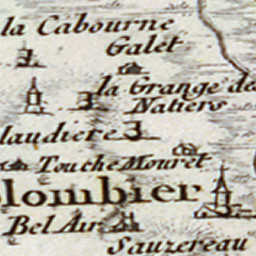 la Cabourne
Galet
la Grange de
Natiers
laudiere
Touche Mouret
lombier
Bel Air
Sauzereau